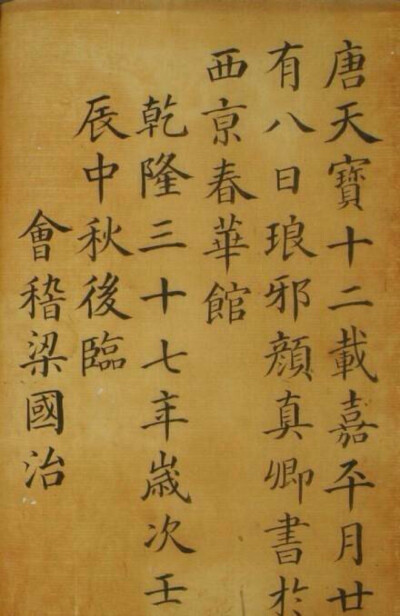 唐天寶十二載嘉平月廿
有八日琅邪顔真卿書於
西京春華館
乾隆三十七年歲次壬
辰中秋後臨
會稽梁國治